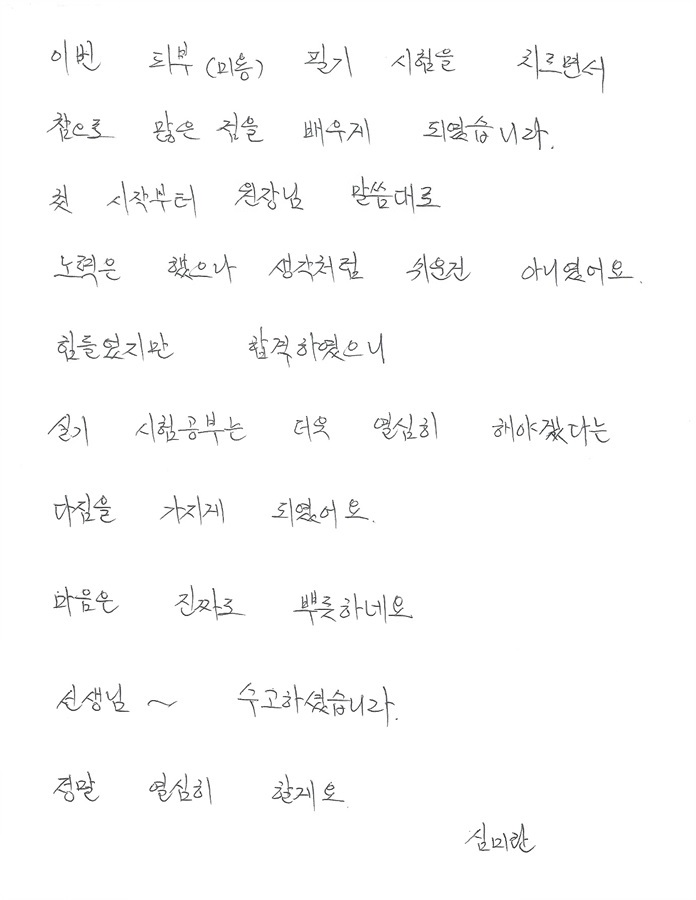 이번 피부 (미용) 필기 시험을 치르면서
참으로 많은 점을 배우게 되었습니다.
첫 시작부터 원장님 말씀대로
노력은 했으나 생각처럼 쉬운건 아니였어요.
힘들었지만 합격하였으니
실기 시험공부는 더욱 열심히 해야겠다는
다짐을 가지게 되였어요.
마음은 진짜로 뿌듯하네요
선생님 ~ 수고하셨습니다.
정말 열심히 할게요
심미란